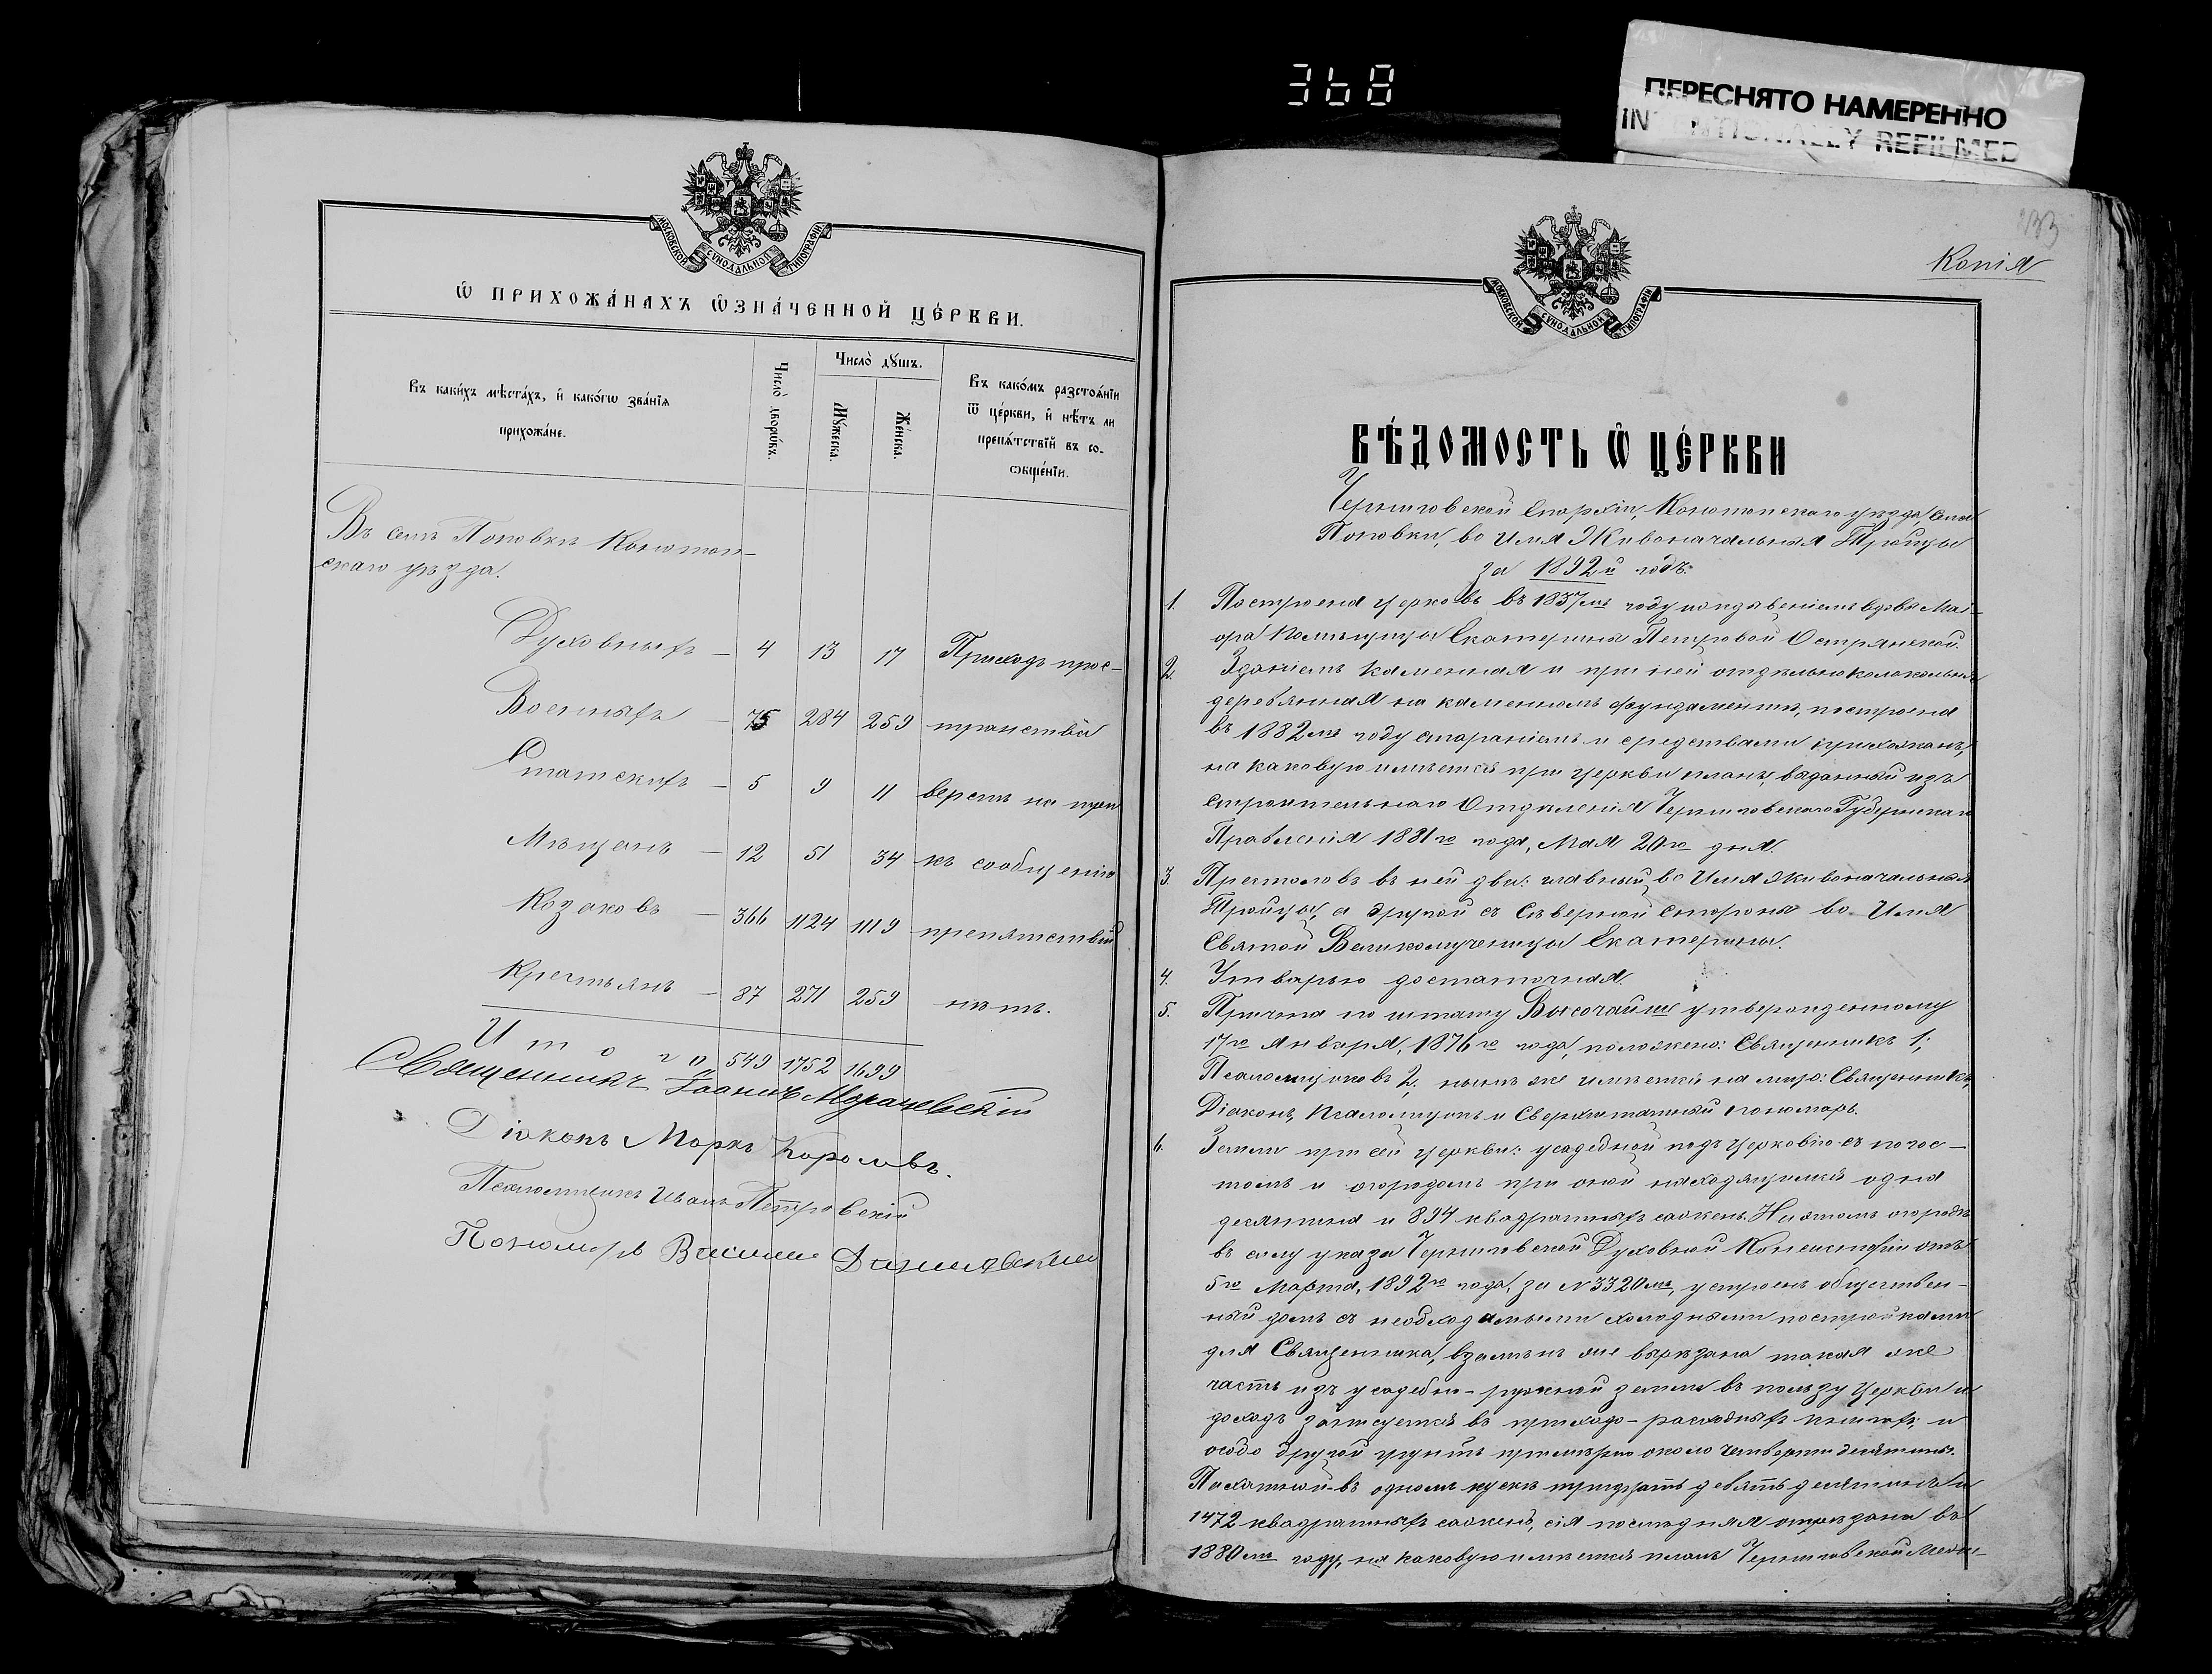 368
ПЕРЕСНЯТО НАМЕРЕННО
INTENTIONALLY REFILMED
МОСКОВСКОЙ СУНОДАЛЬНОЙ ТИПОГРАФІИ
Ѡ ПРИХОЖА́НАХЪ ѠЗНА́ЧЕННОЙ ЦЕ́РКВИ.
Въ каки́хъ мѣста́хъ, и҆ како́гѡ зва́нїѧ
прихожа́не.
Число̀ дворѡ́въ.
Число̀ дꙋшъ.
Мꙋ́жеска.
Же́нска.
Въ како́мъ разстоѧ́нїи
ѿ це́ркви, и҆ нѣ́тъ ли
препѧ́тствїй въ со-
ѻбще́нїи.
Въ селѣ Поповкѣ Конотоп-
скаго уѣзда.
Духовныхъ — 4 13 17 Приходъ прос-
Военныхъ — 75 284 259 транствій
Статскихъ — 5 9 11 верстъ на
Мѣщанъ — 12 51 34 къ сообщенію
Козаковъ — 366 1124 1119 препятствій
Крестьянъ — 87 271 259 нѣтъ.
Итого 549 1752 1699
Священникъ Іоаннъ Мурашевскій
Діаконъ Маркъ Королевъ.
Псаломщикъ Иванъ Петровскій
Пономарь Василій Данилевскій
133
Копія
МОСКОВСКОЙ СУНОДАЛЬНОЙ ТИПОГРАФІИ
ВѢ́ДОМОСТЬ Ѡ҆ ЦЕ́РКВИ
Черниговской Епархіи, Конотопскаго уѣзда, села
Поповки, во Имя Живоначальныя Тройцы
за 1892й годъ.
1. Построена церковь въ 1837мъ году иждивеніемъ вдовы Ма-
ора Екатерины Петровой Острянской.
2. Зданіемъ каменная и при ней отдѣльно колокольня
деревянная на каменномъ фундаментѣ, построена
въ 1882мъ году стараніемъ и средствами прихожанъ,
на каковую имѣется при церкви планъ, выданный изъ
Строительнаго Отдѣленія Черниговскаго Губернскаго
Правленія 1881го года, Мая 20го дня.
3. Престоловъ въ ней два: главный во Имя Живоначальныя
Тройцы, а другой съ Сѣверной стороны во Имя
Святой Великомученицы Екатерины.
4. Утварью достаточная.
5. Причта по штату Высочайше утвержденному
17го Января, 1876го года, положено: Священникъ 1;
Псаломщиковъ 2, нынѣ же имѣется на лицо: Священникъ,
Діаконъ, Псаломщикъ и Сверхштатный пономарь.
6. Земли при сей церкви: усадебной подъ церковію съ погос-
томъ и огородомъ при оной находящимся одна
десятина и 894 квадратныхъ сажень. На этомъ огородѣ
въ силу указа Черниговской Духовной Консисторіи отъ
5го Марта, 1892го года, за N 3320мъ, устроенъ обществен-
ный домъ съ необходимыми холодными постройками
для Священника, взамѣнъ же вырѣзана такая же
часть изъ усадебно-ружной земли въ пользу церкви и
доходъ записуется въ приходо-расходныхъ книгахъ; и
особо другой грунтъ примѣрно около четверти десятины.
Пахатной въ одномъ кускѣ тридцать девять десятинъ и
1472 квадратныхъ сажень, сія послѣдняя отрѣзана въ
1880мъ году, на каковую имѣется планъ Черниговской Меже-